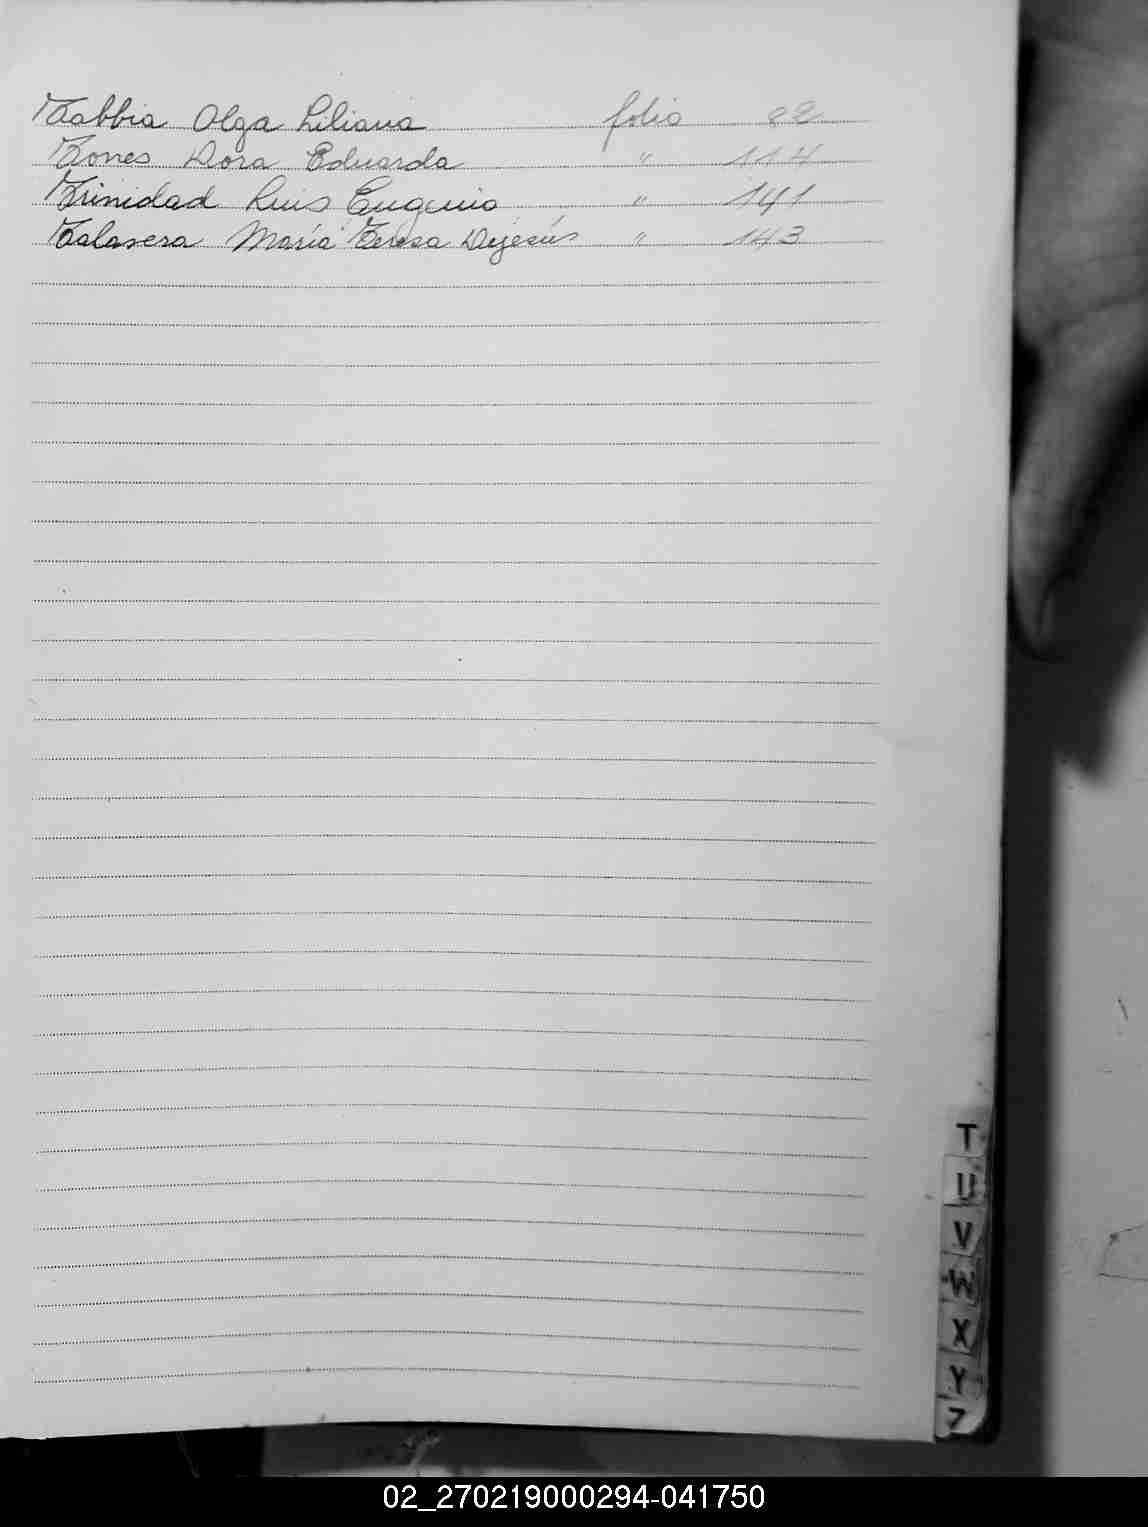 Tabbia Olga Liliana folio 82
Tones Dora Eduarda " 114
Trinidad Luis Eugenio " 141
Talavera María Teresa Dejesús " 143
T
U
V
W
X
Y
Z
02_270219000294-041750